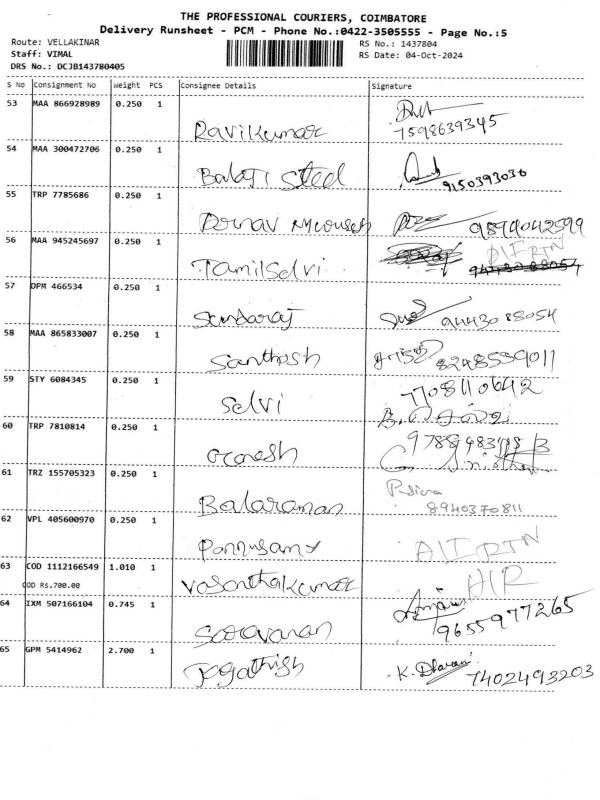 THE PROFESSIONAL COURIERS, COIMBATORE
Delivery Runsheet - PCM - Phone No.:0422-3505555 - Page No.:5
Route: VELLAKINAR
RS No.: 1437804
Staff: VIMAL
RS Date: 04-Oct-2024
DRS No.: DCJB143780405
S No Consignment No Weight PCS Consignee Details Signature
53 MAA 866928989 0.250 1
Ravikumar 7598639345
54 MAA 300472706 0.250 1
Balaji Steel 9150393036
55 TRP 7785686 0.250 1
9894042599
56 MAA 945245697 0.250 1
Tamilselvi
57 DPM 466534 0.250 1
Sundaraj 94430 88054
58 MAA 865833007 0.250 1
Santhosh 8248539011
59 STY 6084345 0.250 1
7708110642
Selvi
60 TRP 7810814 0.250 1
Ganesh
61 TRZ 155705323 0.250 1
Balaraman 8940370811
62 VPL 405600970 0.250 1
Ponnusamy
63 COD 1112166549 1.010 1
COD Rs.700.00
Vasanthakumar
64 IXM 507166104 0.745 1
Saravanan 9655977265
65 GPM 5414962 2.700 1
Jegathish K. Dharani 7402493203